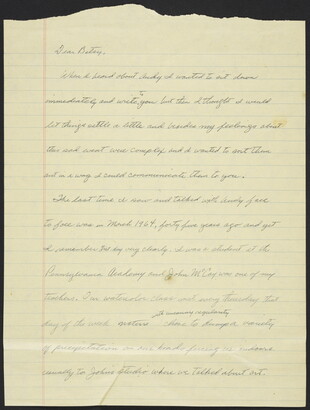 Dear Betsy,
When I heard about Andy I wanted to sit down
immediately and write you but then I thought I would
let things settle a little and besides my feelings about
this sad event were complex and I wanted to sort them
out in a way I could communicate them to you.
The last time I saw and talked with Andy face
to face was in March 1964, forty five years ago and yet
I remember the day very clearly. I was a student at the
Pennsylvania Academy and John McCoy was one of my
teachers. I'm watercolor class and every Thursday that
day of the week
its summary regularity
chose to change a variety
of presentation in
usually to John's Studio where we talked about art.